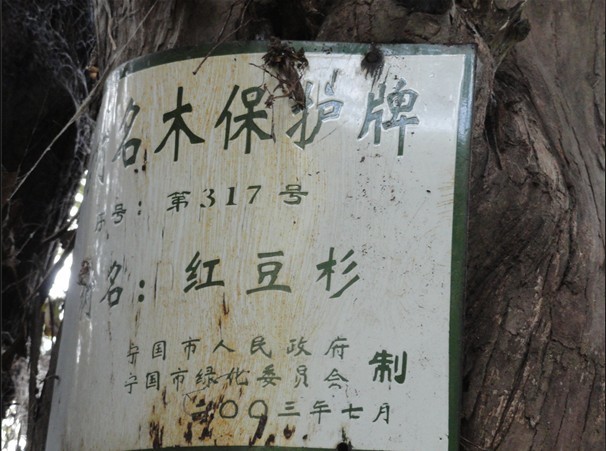 名木保护牌
序号：第317号
名：红豆杉
宁国市人民政府
宁国市绿化委员会 制
二〇〇三年七月